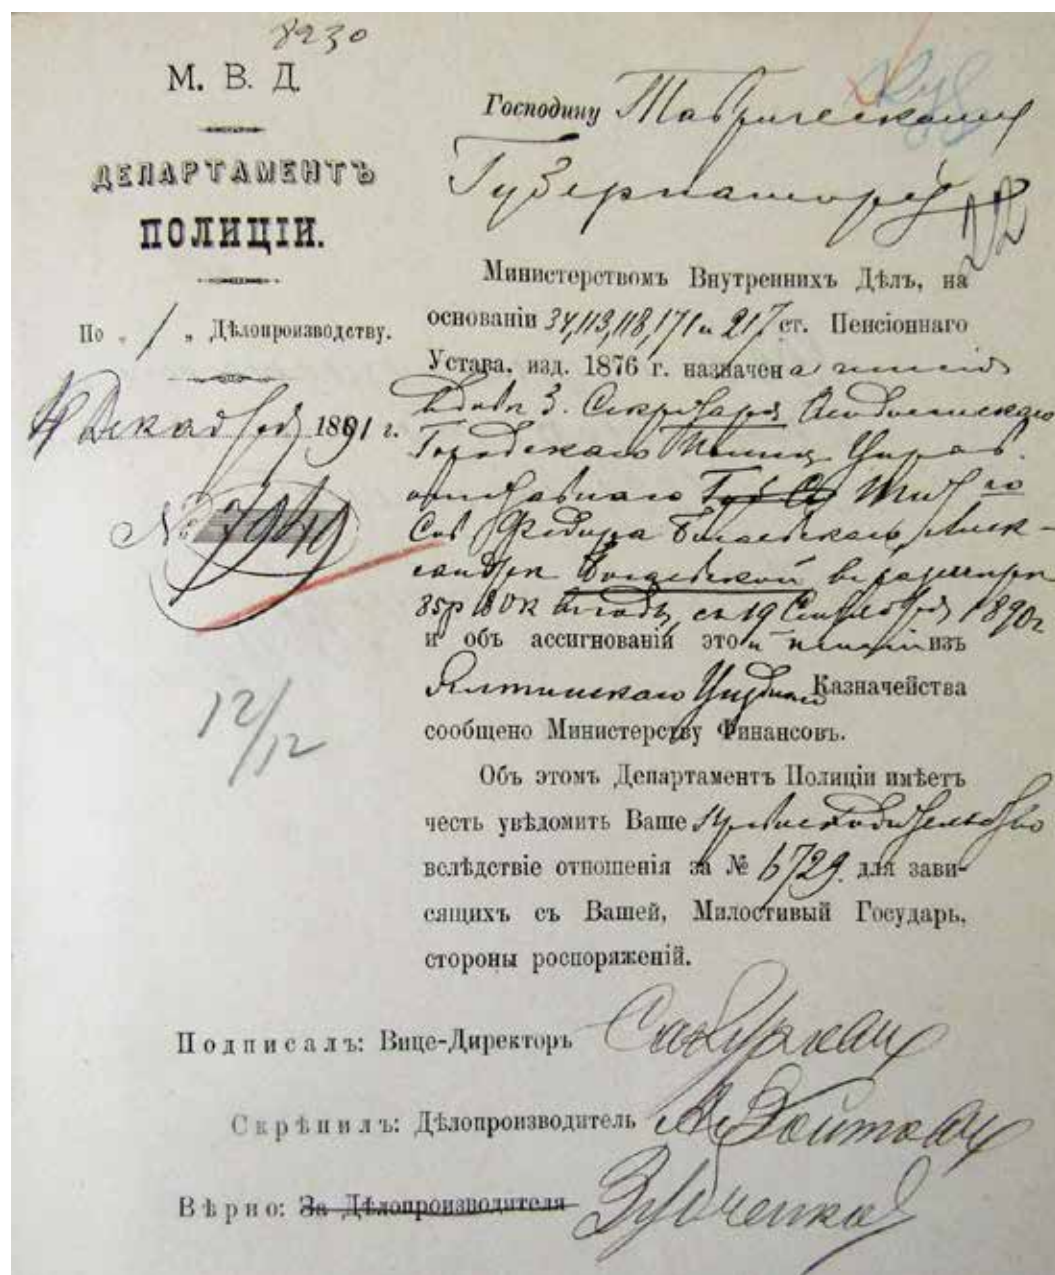 8230
М. В. Д.
ДЕПАРТАМЕНТЪ
ПОЛИЦІИ.
По „ 1 „ Дѣлопроизводству.
4 Декабря 1891 г.
№ 7949
12/12
Господину Таврическому
Губернатору
22
Министерствомъ Внутреннихъ Дѣлъ, на
основаніи 34,113,118,171 и 217 ст. Пенсіоннаго
Устава, изд. 1876 г. назначена пенсія
вдовѣ Секретаря Ѳеодосійскаго
Городскаго Полиц. Управ.
отставнаго Тит го
Сов Федора Алек-
сандрѣ въ размѣрѣ
85р 80к въ годъ, съ 19 Сентября 1890г
и объ ассигнованіи этой пенсіи изъ
Ялтинскаго Уѣзднаго Казначейства
сообщено Министерству Финансовъ.
Объ этомъ Департаментъ Полиціи имѣетъ
честь увѣдомить Ваше Превосходительство
вслѣдствіе отношенія за № 6729. для зави-
сящихъ съ Вашей, Милостивый Государь,
стороны роспоряженій.
Подписалъ: Вице-Директоръ
Скрѣпилъ: Дѣлопроизводитель
Вѣрно: За Дѣлопроизводителя